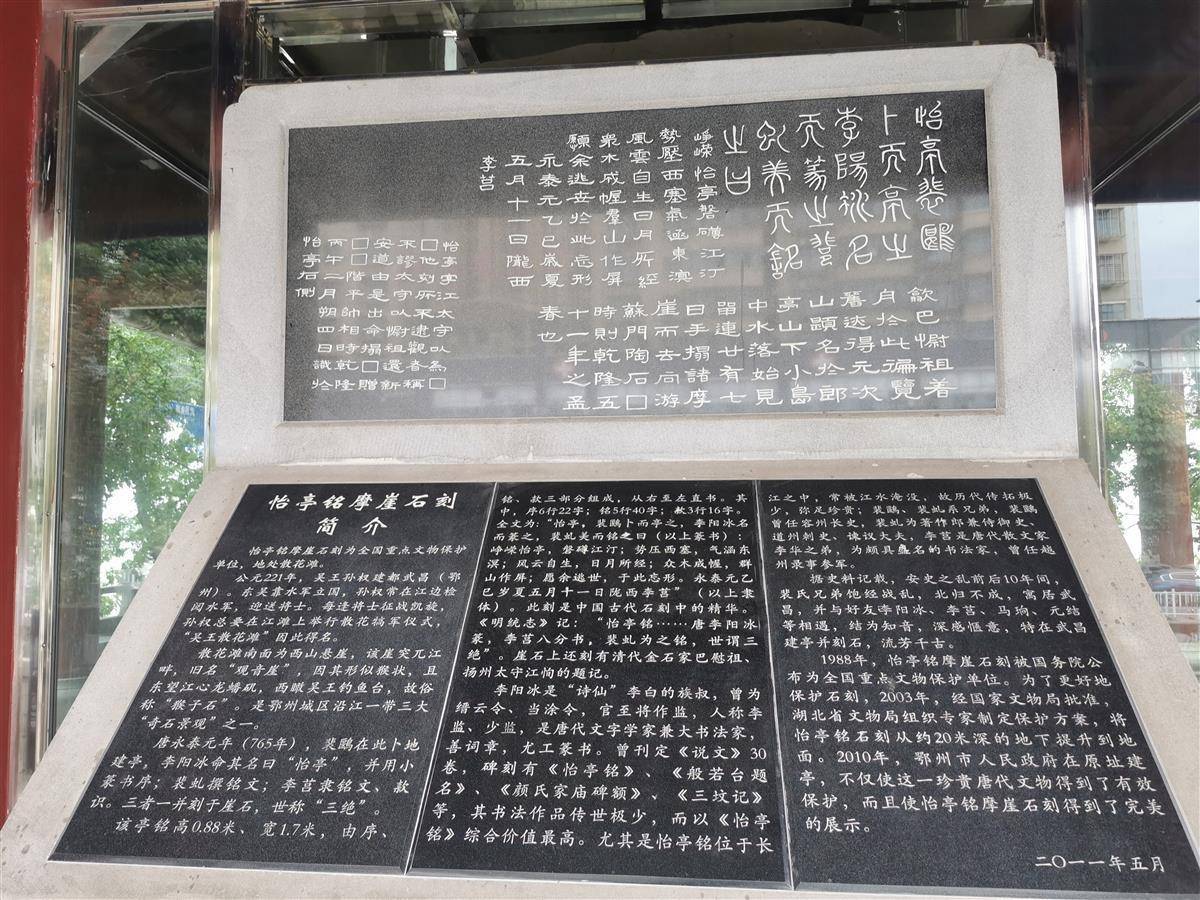 怡亭裴鶠
卜而亭之
李陽冰名
而篆之裴
虬美而銘
之曰
崢嶸怡亭磐礡江汀
勢壓西塞氣涵東溟
風雲自生日月所經
衆木成幄羣山作屏
願余逃世於此忘形
永泰元乙巳歲夏
五月十一日隴西
李莒
歙巴慰祖着
舟於此徧覽
舊迹得元次
山題名於郎
亭山下小島
中水落始見
留連廿有七
日手搨諸摩
崖而去同游
蘇門陶石□
時則乾隆五
十一年之孟
春也
怡亭字江太守以爲□
□他刻所不逮觀者稱
不謬太守以慰祖還新
安道由是出命搨□贈
□□階平帥相時乾隆
丙午二月朔四日識於
怡亭石側
怡亭铭摩崖石刻
简介
怡亭铭摩崖石刻为全国重点文物保护
单位，地处散花滩。
公元221年，吴王孙权建都武昌（鄂
州）。东吴靠水军立国，孙权常在江边检
阅水军，迎送将士。每逢将士征战凯旋，
孙权总要在江滩上举行散花犒军仪式，
“吴王散花滩”因此得名。
散花滩南面为西山悬崖，该崖突兀江
畔，旧名“观音崖”，因其形似猴状，且
东望江心龙蟠矶，西瞰吴王钓鱼台，故俗
称“猴子石”。是鄂州城区沿江一带三大
“奇石景观”之一。
唐永泰元年（765年），裴鶠在此卜地
建亭，李阳冰命其名曰“怡亭”，并用小
篆书序；裴虬撰铭文；李莒隶铭文、款
识。三者一并刻于崖石，世称“三绝”。
该亭铭高0.88米、宽1.7米，由序、
铭、款三部分组成，从右至左直书。其
中，序6行22字；铭5行40字；款3行16字。
全文为：“怡亭，裴鶠卜而亭之，李阳冰名
而篆之，裴虬美而铭之曰（以上篆书）：
峥嵘怡亭，磐礴江汀；势压西塞，气涵东
溟；风云自生，日月所经；众木成幄，群
山作屏；愿余逃世，于此忘形。永泰元乙
巳岁夏五月十一日陇西李莒”（以上隶
体）。此刻是中国古代石刻中的精华。
《明统志》记：“怡亭铭……唐李阳冰
篆，李莒八分书，裴虬为之铭，世谓三
绝”。崖石上还刻有清代金石家巴慰祖、
扬州太守江恂的题记。
李阳冰是“诗仙”李白的族叔，曾为
缙云令、当涂令，官至将作监，人称李
监、少监，是唐代文字学家兼大书法家，
善词章，尤工篆书。曾刊定《说文》30
卷，碑刻有《怡亭铭》、《般若台题
名》、《颜氏家庙碑额》、《三坟记》
等，其书法作品传世极少，而以《怡亭
铭》综合价值最高。尤其是怡亭铭位于长
江之中，常被江水淹没，故历代传拓极
少，弥足珍贵；裴鶠、裴虬系兄弟，裴鶠
曾任容州长史，裴虬为著作郎兼侍御史、
道州刺史、谏议大夫，李莒是唐代散文家
李华之弟，为颇具盛名的书法家，曾任越
州录事参军。
据史料记载，安史之乱前后10年间，
裴氏兄弟饱经战乱，北归不成，寓居武
昌，并与好友李阳冰、李莒、马珦、元结
等相遇，结为知音，深感惬意，特在武昌
建亭并刻石，流芳千古。
1988年，怡亭铭摩崖石刻被国务院公
布为全国重点文物保护单位。为了更好地
保护石刻，2003年，经国家文物局批准，
湖北省文物局组织专家制定保护方案，将
怡亭铭石刻从约20米深的地下提升到地
面。2010年，鄂州市人民政府在原址建
亭，不仅使这一珍贵唐代文物得到了有效
保护，而且使怡亭铭摩崖石刻得到了完美
的展示。
二〇一一年五月